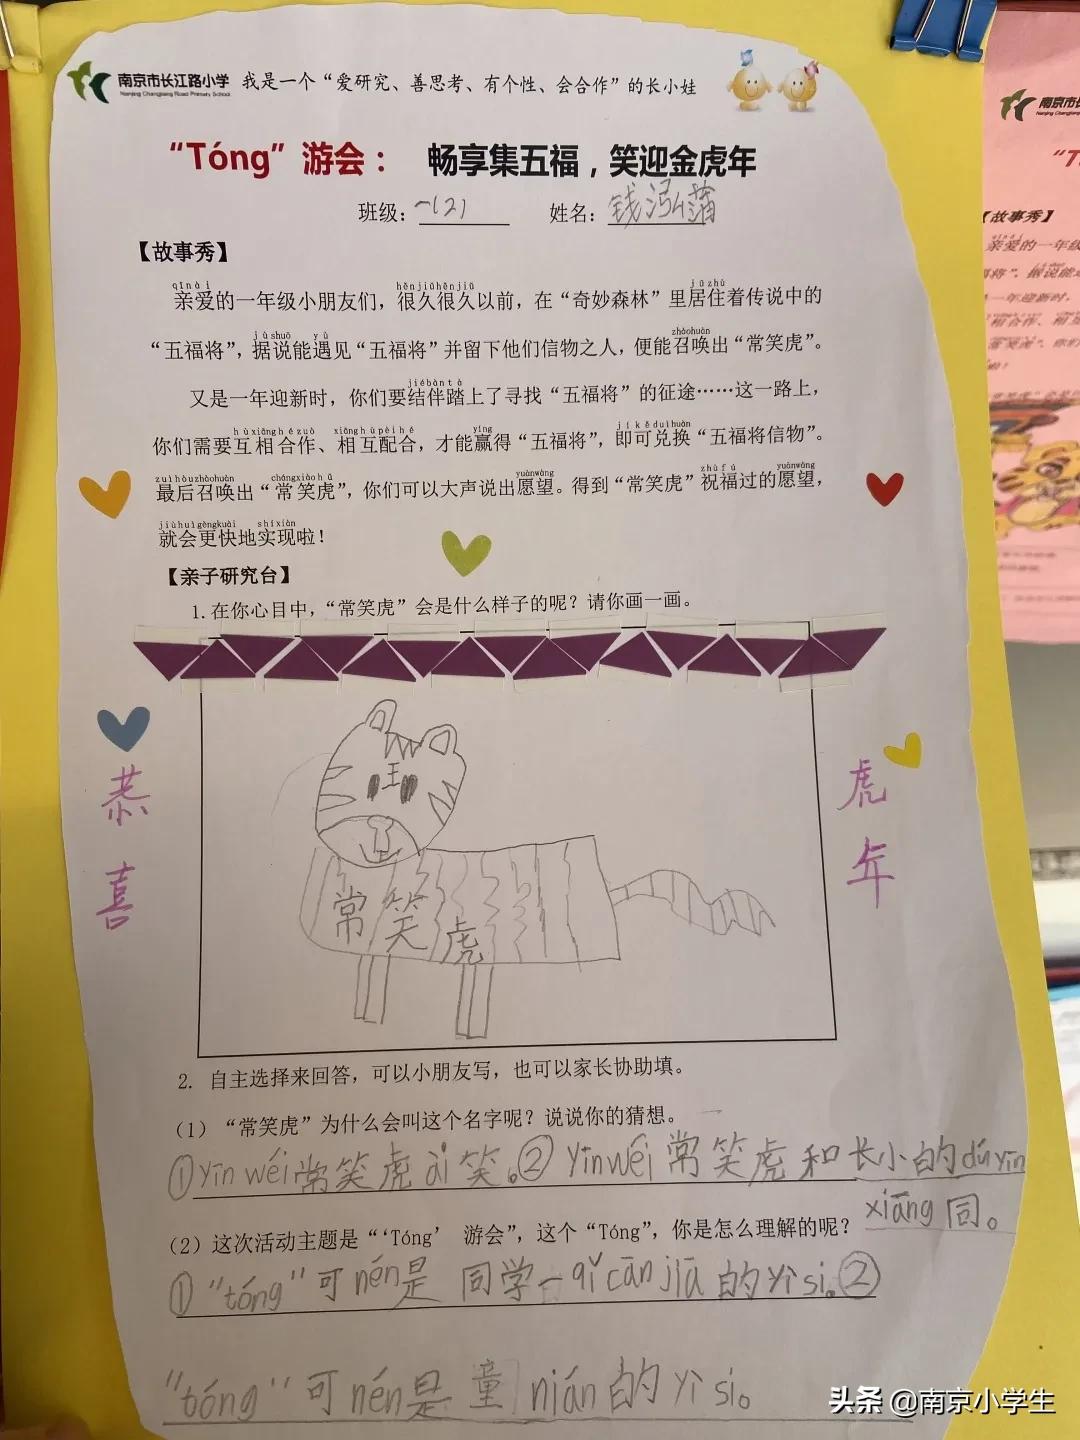 南京市长江路小学 我是一个“爱研究、善思考、有个性、会合作”的长小娃
Nanjing Changjiang Road Primary School
“Tóng”游会： 畅享集五福，笑迎金虎年
班级：一(2) 姓名：钱泓蒲
【故事秀】
qīn ài hěnjiǔhěnjiǔ jūzhù
亲爱的一年级小朋友们，很久很久以前，在“奇妙森林”里居住着传说中的
jùshuō yù zhàohuàn
“五福将”，据说能遇见“五福将”并留下他们信物之人，便能召唤出“常笑虎”。
jiébàntà
又是一年迎新时，你们要结伴踏上了寻找“五福将”的征途……这一路上，
hùxiānghézuò xiānghùpèihé yíng jíkěduìhuàn
你们需要互相合作、相互配合，才能赢得“五福将”，即可兑换“五福将信物”。
zuìhòuzhàohuàn chángxiàohǔ yuànwàng zhùfú yuànwàng
最后召唤出“常笑虎”，你们可以大声说出愿望。得到“常笑虎”祝福过的愿望，
jiùhuìgèngkuài shíxiàn
就会更快地实现啦！
【亲子研究台】
1.在你心目中，“常笑虎”会是什么样子的呢？请你画一画。
王
常笑虎
恭喜
虎年
2. 自主选择来回答，可以小朋友写，也可以家长协助填。
（1）“常笑虎”为什么会叫这个名字呢？说说你的猜想。
①yīn wéi常笑虎ài笑。②yīnwéi常笑虎和长小的dúyīn
xiāng同。
（2）这次活动主题是“‘Tóng’ 游会”，这个“Tóng”，你是怎么理解的呢？
①“tóng”可nén是 同学一qǐcānjiā的yìsi。②
“tóng”可nén是童nián的yìsi。
头条 @南京小学生
南京市长
【故事秀】